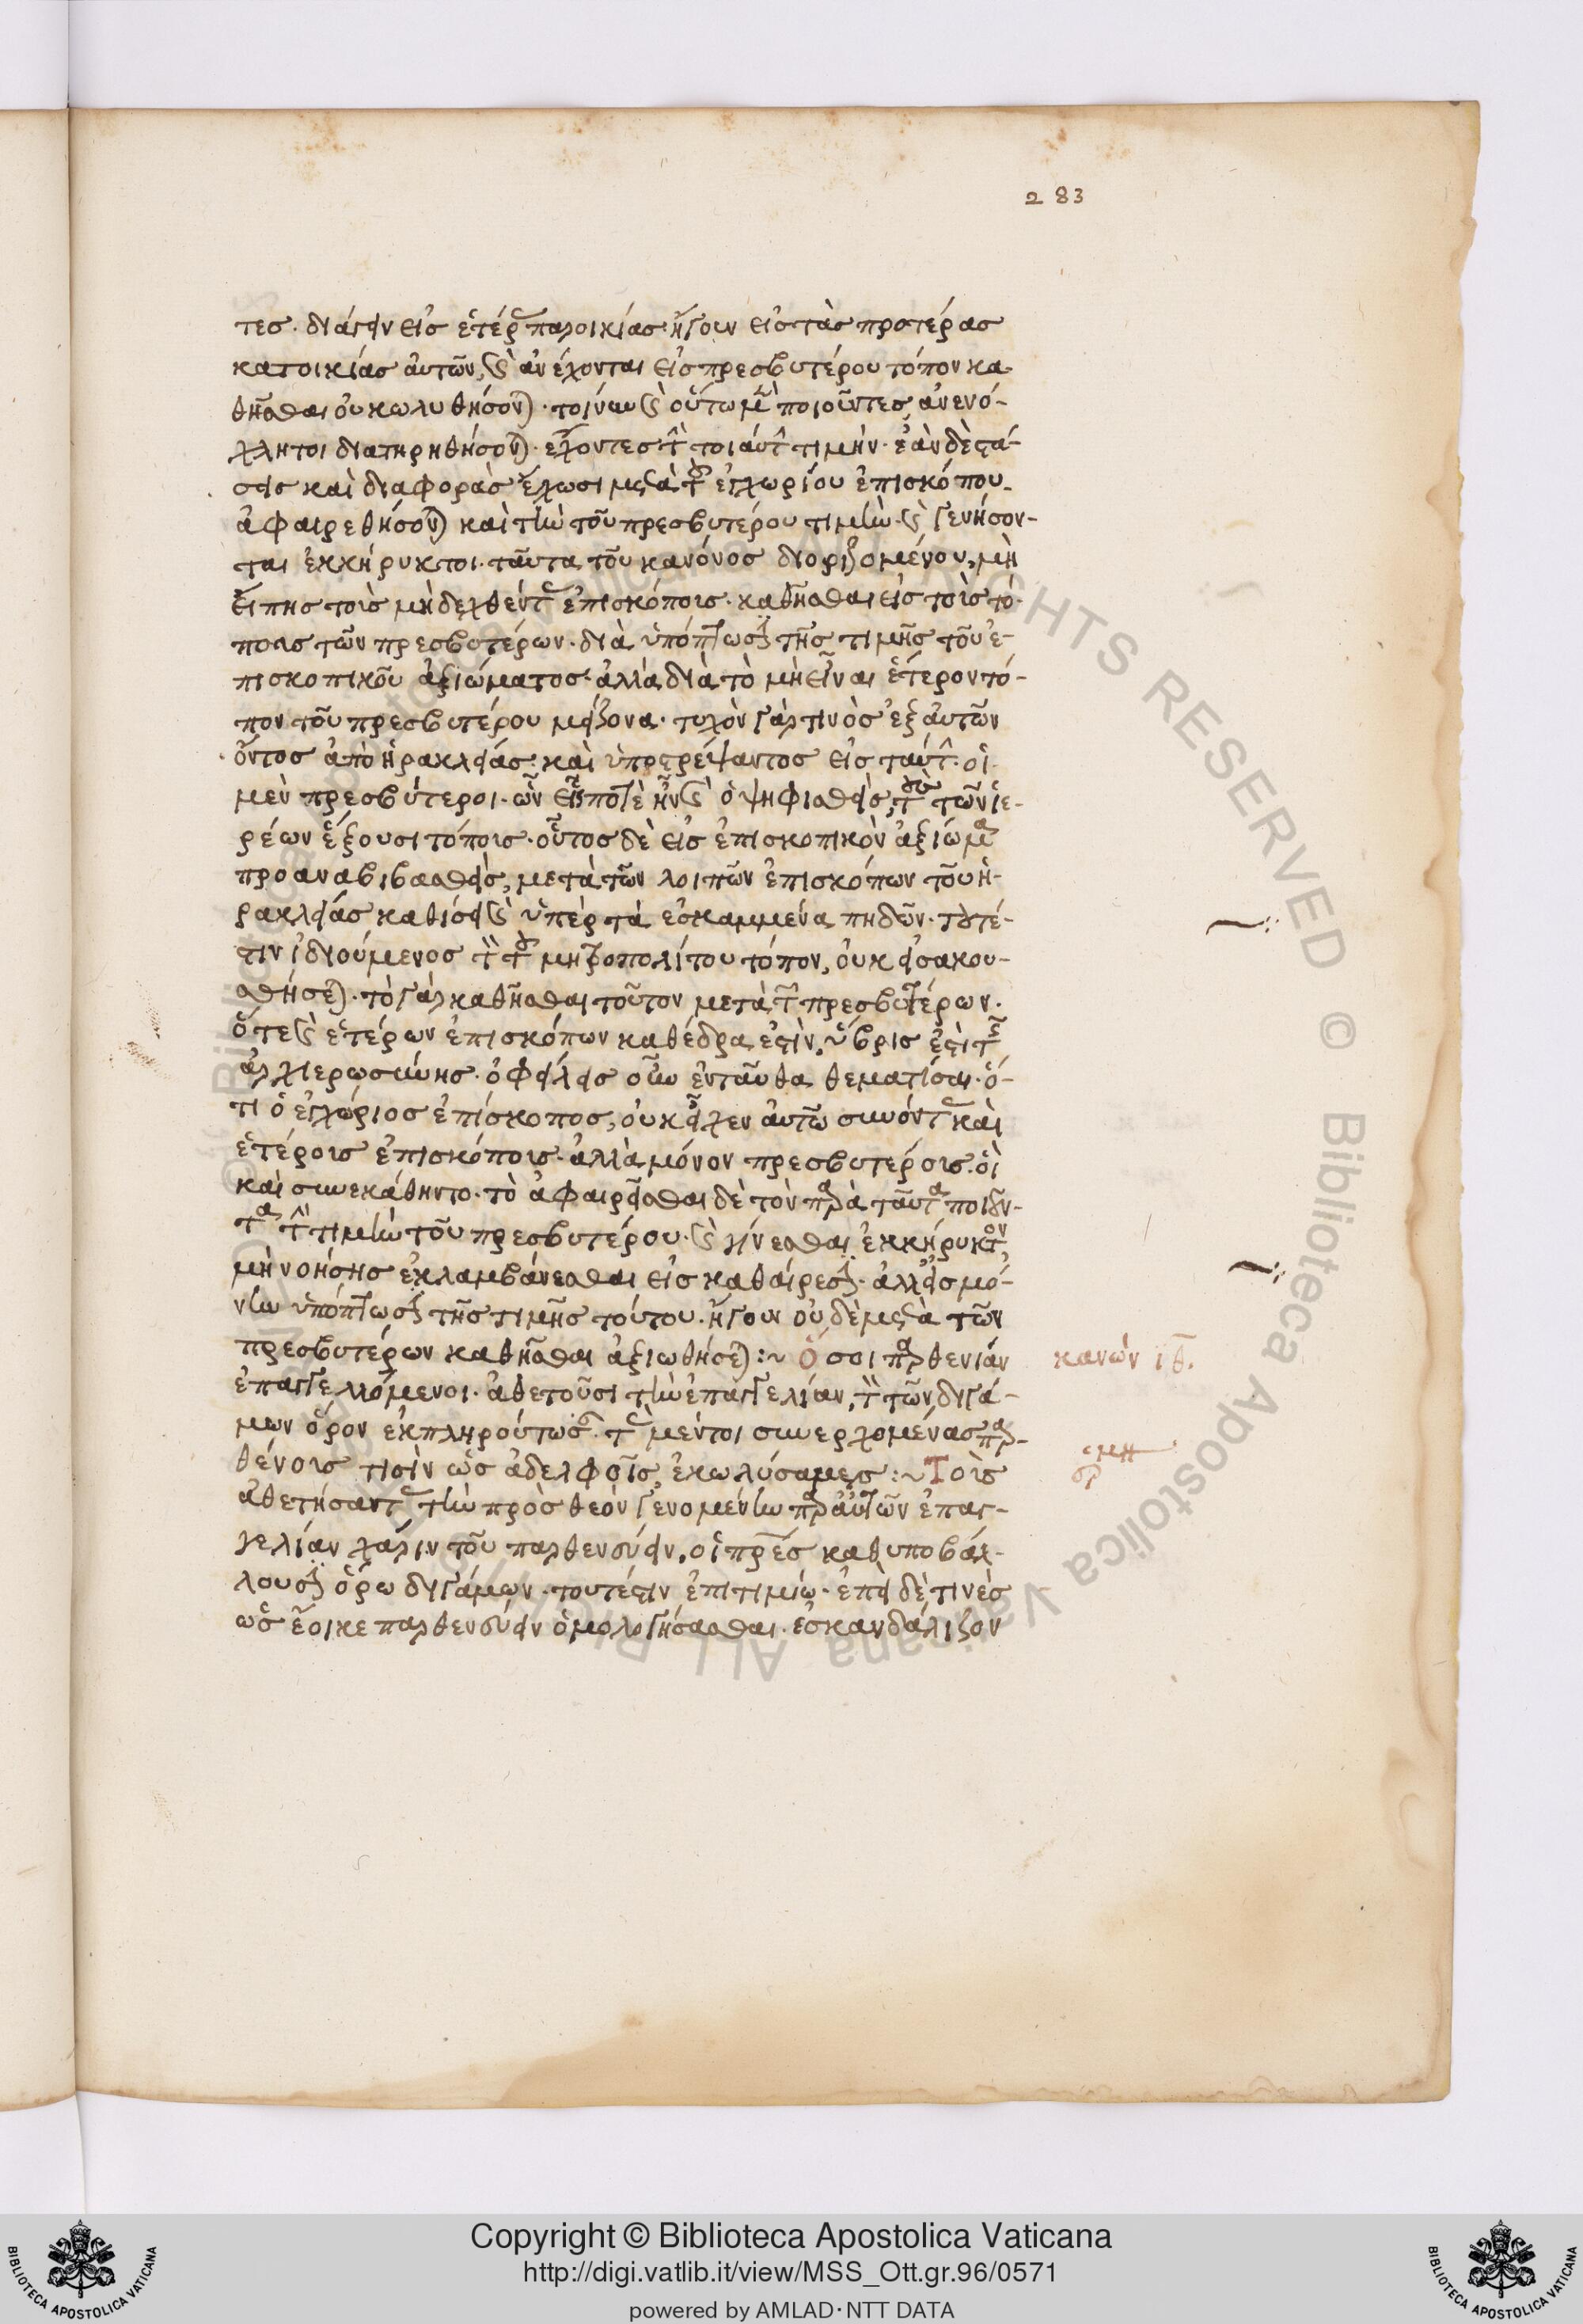 283
τες· διάγειν εἰς ἑτέρας παροικίας ἤγουν εἰς τὰς προτέρας
κατοικίας αὐτῶν, καὶ ἀνέχονται εἰς πρεσβυτέρου τόπον κα-
θῆσθαι οὐ κωλυθήσονται· τοίνυν καὶ οὕτω μὲν ποιοῦντες ἀνενό-
χλητοι διατηρηθήσονται· ἔχοντες τὴν τοιαύτην τιμήν· ἐὰν δὲ στά-
σεις καὶ διαφορὰς ἔχωσι μετὰ τοῦ ἐγχωρίου ἐπισκόπου
ἀφαιρεθήσονται καὶ τὴν τοῦ πρεσβυτέρου τιμὴν· καὶ γενήσον-
ται ἐκκήρυκτοι· ταῦτα τοῦ κανόνος διοριζομένου, μὴ
εἴπῃς τοὺς μὴ δεχθέντας ἐπισκόπους· καθῆσθαι εἰς τοὺς τό-
πους τῶν πρεσβυτέρων· διὰ ὑπόπτωσιν τῆς τιμῆς τοῦ ἐ-
πισκοπικοῦ ἀξιώματος· ἀλλὰ διὰ τὸ μὴ εἶναι ἕτερον τό-
πον τοῦ πρεσβυτέρου μείζονα· τυχὸν γάρ τινος ἐξ αὐτῶν
ὄντος ἀπὸ ἡρακλείας· καὶ ὑποστρέψαντος εἰς ταύτην· οἱ
μὲν πρεσβύτεροι· ὧν εἷς ποτὲ ἦν καὶ ὁ ψηφισθεὶς, τοὺς τῶν ἱε-
ρέων ἕξουσι τόπους· οὗτος δὲ εἰς ἐπισκοπικὸν ἀξίωμα
προαναβιβασθεὶς, μετὰ τῶν λοιπῶν ἐπισκόπων τοῦ ἡ-
ρακλείας καθίσει καὶ ὑπὲρ τὰ ἐσκαμμένα πηδῶν· τουτέ-
στιν ἰδιούμενος τὸν τοῦ μητροπολίτου τόπον, οὐκ εἰσακου-
σθήσεται· τὸ γὰρ καθῆσθαι τοῦτον μετὰ τῶν πρεσβυτέρων·
ὅτε καὶ ἑτέρων ἐπισκόπων καθέδρα ἐστὶν, ὕβρις ἐστὶ τῆς
ἀρχιερωσύνης· ὀφείλεις οὖν ἐνταῦθα θεματίσαι· ὅ-
τι ὁ ἐγχώριος ἐπίσκοπος, οὐκ εἶχεν αὐτῶ συνόντας καὶ
ἑτέρους ἐπισκόπους· ἀλλὰ μόνον πρεσβυτέρους· οἳ
καὶ συνεκάθηντο· τὸ ἀφαιρεῖσθαι δὲ τὸν παρὰ ταῦτα ποιοῦν-
τα τὴν τιμὴν τοῦ πρεσβυτέρου· καὶ γίνεσθαι ἐκκήρυκτον,
μὴ νοήσῃς ἐκλαμβάνεσθαι εἰς καθαίρεσιν· ἀλλ' εἰς μό-
νην ὑπόπτωσιν τῆς τιμῆς τούτου· ἤγουν οὐδὲ μετὰ τῶν
πρεσβυτέρων καθῆσθαι ἀξιωθήσεται :~ Ὅσοι παρθενίαν
κανὼν ιθ.
ἐπαγγελλόμενοι· ἀθετοῦσι τὴν ἐπαγγελίαν, τὸν τῶν διγά-
μων ὅρον ἐκπληρούτωσαν· τὰς μέντοι συνερχομένας παρ-
θένους τισὶν ὡς ἀδελφοῖς, ἐκωλύσαμεν :~ Τοὺς
ἀθετήσαντας τὴν πρὸς θεὸν γενομένην παρ' αὐτῶν ἐπαγ-
γελίαν χάριν τοῦ παρθενεύειν, οἱ πατέρες καθυποβάλ-
λουσιν ὅρω διγάμων· τουτέστιν ἐπιτιμίω· ἐπεὶ δὲ τινὲς
ὡς ἔοικε παρθενεύειν ὁμολογήσασθαι· ἐσκανδάλιζον